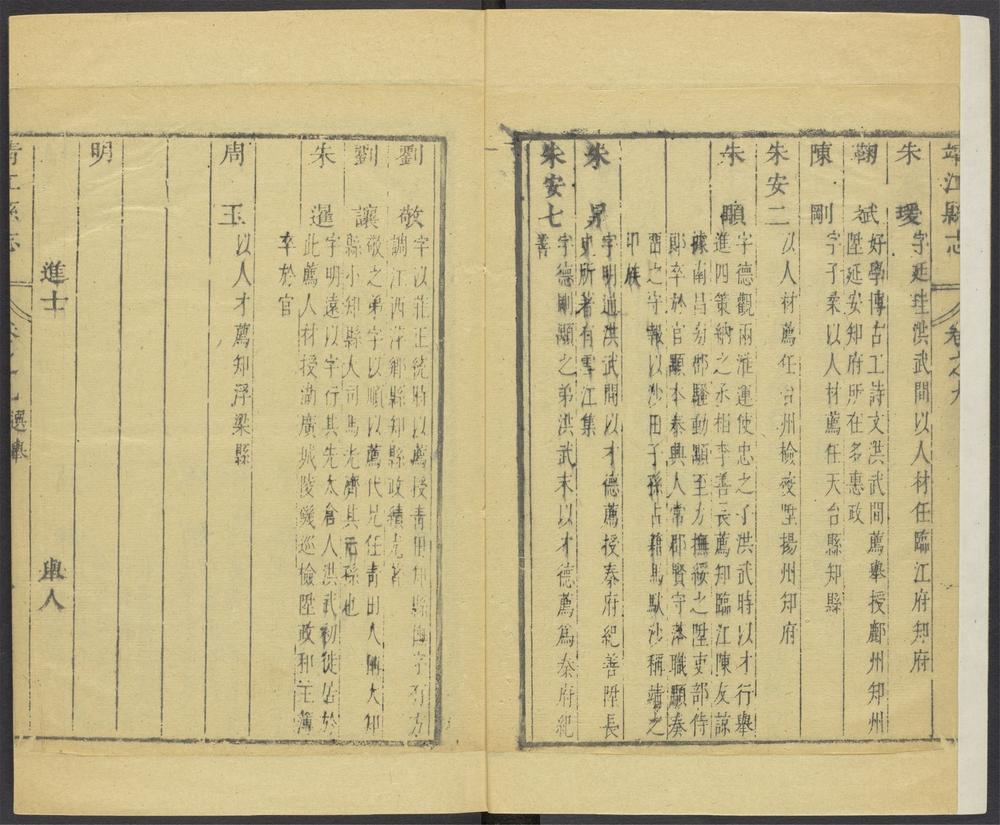 靖江縣志 卷之九
朱 瓊 字延珪洪武間以人材任臨江府知府
鞠 斌 好學博古工詩文洪武間薦舉授鄜州知州
陞延安知府所在多惠政
陳 剛 字子柔以人材薦任天台縣知縣
朱安二 以人材薦任台州檢校陞揚州知府
朱 顯 字德觀兩淮運使忠之子洪武時以才行舉
進四策納之丞相李善長薦知臨江陳友諒
據南昌旁郡騷動顯至力撫綏之陞吏部侍
郎卒於官顯本泰興人常郡賢守落職顯奏
留之守報以沙田子孫占籍馬馱沙稱靖之
印族
朱 昇 字明逈洪武間以才德薦授秦府紀善陞長
史所著有雪江集
朱安七 字德剛顯之弟洪武末以才德薦爲秦府紀
善
劉 敬 字以莊正統時以薦授青田知縣
調江西萍鄉縣知縣政績尤著
劉 讓 敬之弟字以順以薦代兄任青田人
縣小知縣人司馬光濟其元孫也
朱 暹 字明遠以字行其先太倉人洪武初徙居於
此薦人材授湖廣城陵磯巡檢陞政和主簿
卒於官
周 玉 以人才薦知浮梁縣
明
進士 舉人
靖江縣志 選舉